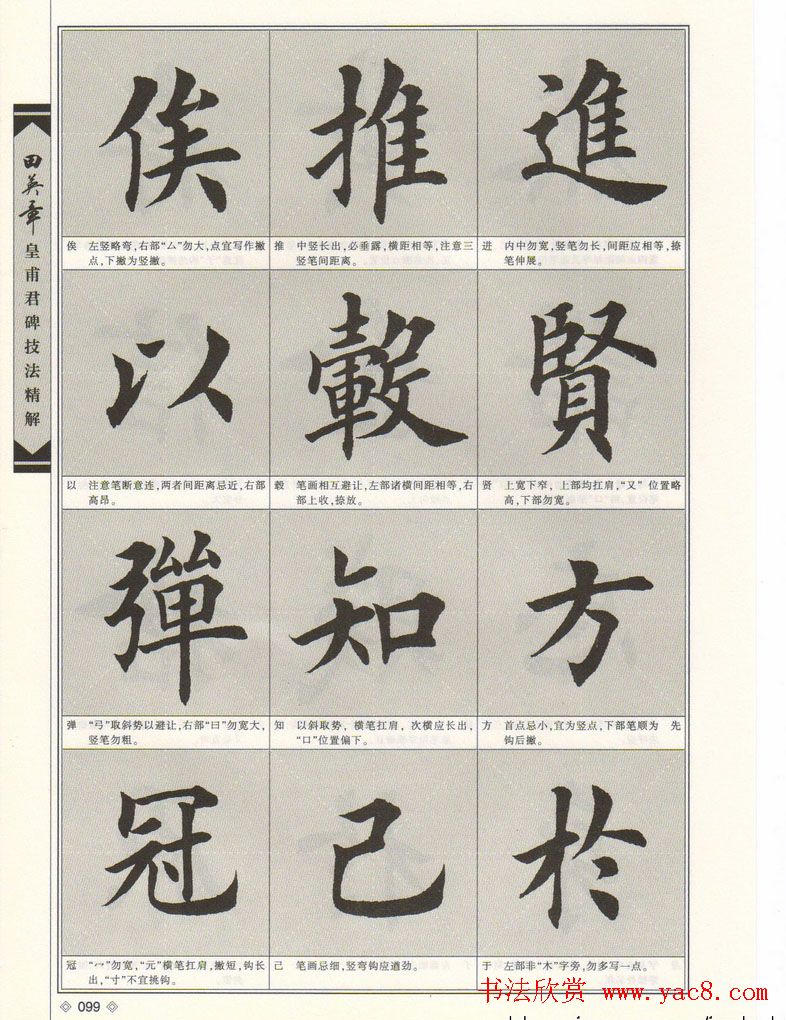 田英章
皇甫君碑技法精解
俟 推 進
俟 左竖略弯，右部“厶”勿大，点宜写作撇
点，下撇为竖撇。
推 中竖长出，必垂露，横距相等，注意三
竖笔间距离。
进 内中勿宽，竖笔勿长，间距应相等，捺
笔伸展。
以 轂 賢
以 注意笔断意连，两者间距离忌近，右部
高昂。
毂 笔画相互避让，左部诸横间距相等，右
部上收，捺放。
贤 上宽下窄，上部均扛肩，“又”位置略
高，下部勿宽。
彈 知 方
弹 “弓”取斜势以避让，右部“曰”勿宽大，
竖笔勿粗。
知 以斜取势，横笔扛肩，次横应长出，
“口”位置偏下。
方 首点忌小，宜为竖点，下部笔顺为 先
钩后撇。
冠 己 於
冠 “冖”勿宽，“元”横笔扛肩，撇短，钩长
出，“寸”不宜挑钩。
己 笔画忌细，竖弯钩应遒劲。
于 左部非“木”字旁，勿多写一点。
099
书法欣赏 www.yac8.com